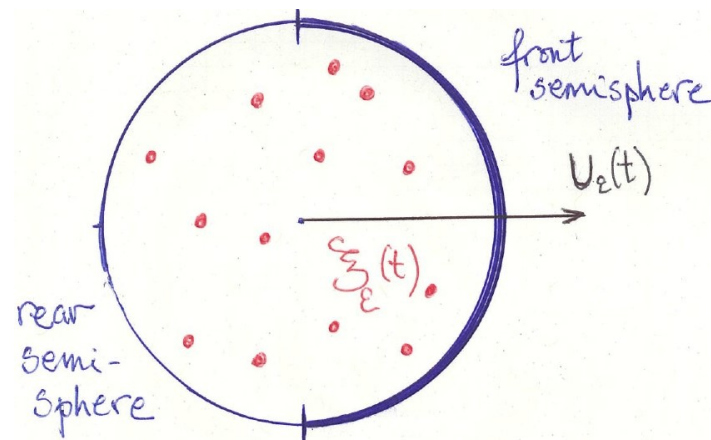 front
semisphere
U_ε(t)
ξ_ε(t)
rear
semi-
sphere